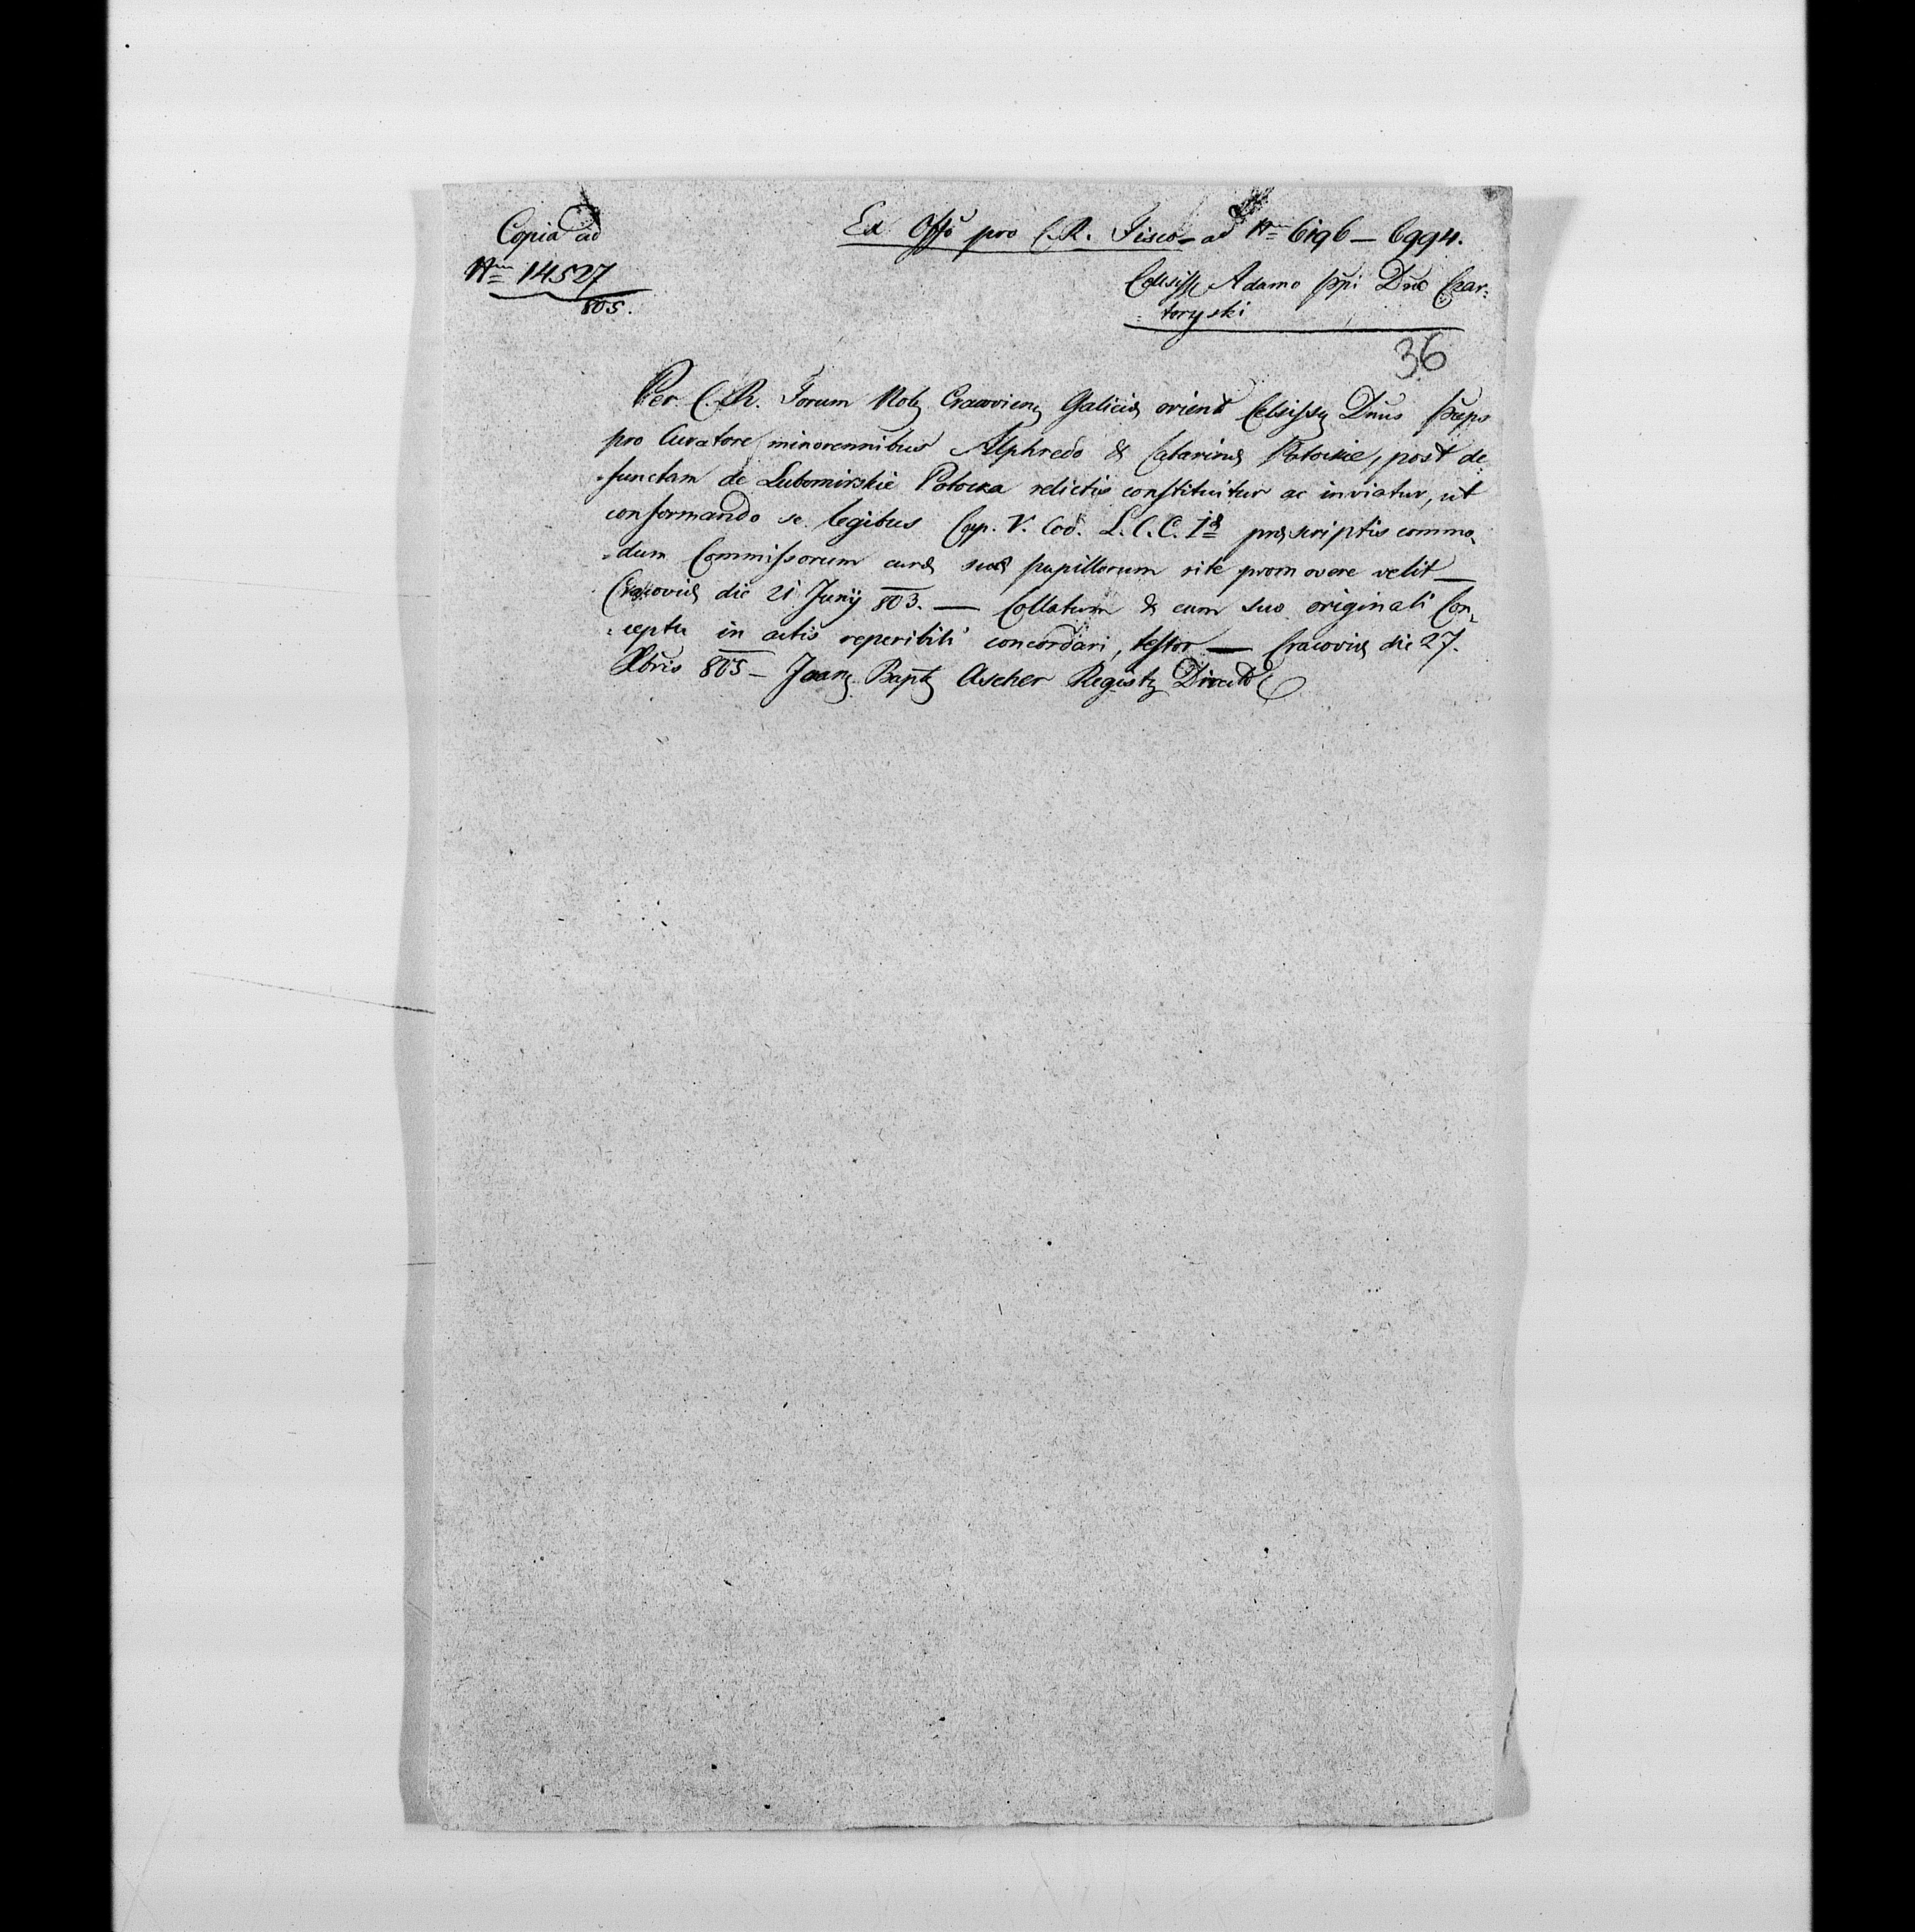 Copia ad
Nrm 14527
805.
Ex Offo pro C. R. Fisco ad Nrm 6196 – 6994.
Celsiss Adamo Ppi Duc Czar-
toryski
36
Per C. R. Forum Nob Cracovien Galiciæ orient Celsissus Dnus Pceps
pro Curatore minorennibus Alphredo & Catarinæ Potockie, post de-
functam de Lubomirskie Potocka relictis constituitur ac inviatur, ut
conformando se legibus Cap. V. Cod. L. C. C. Iæ præscriptis commo-
dum Commissorum curæ suæ pupillorum rite promovere velit —
Cracoviæ die 21 Junÿ 803. — Collatum & cum suo originali Con-
ceptu in actis reperibili concordari, testor — Cracoviæ die 27.
Xbris 805 – Joan Bapt Ascher Regist Direct